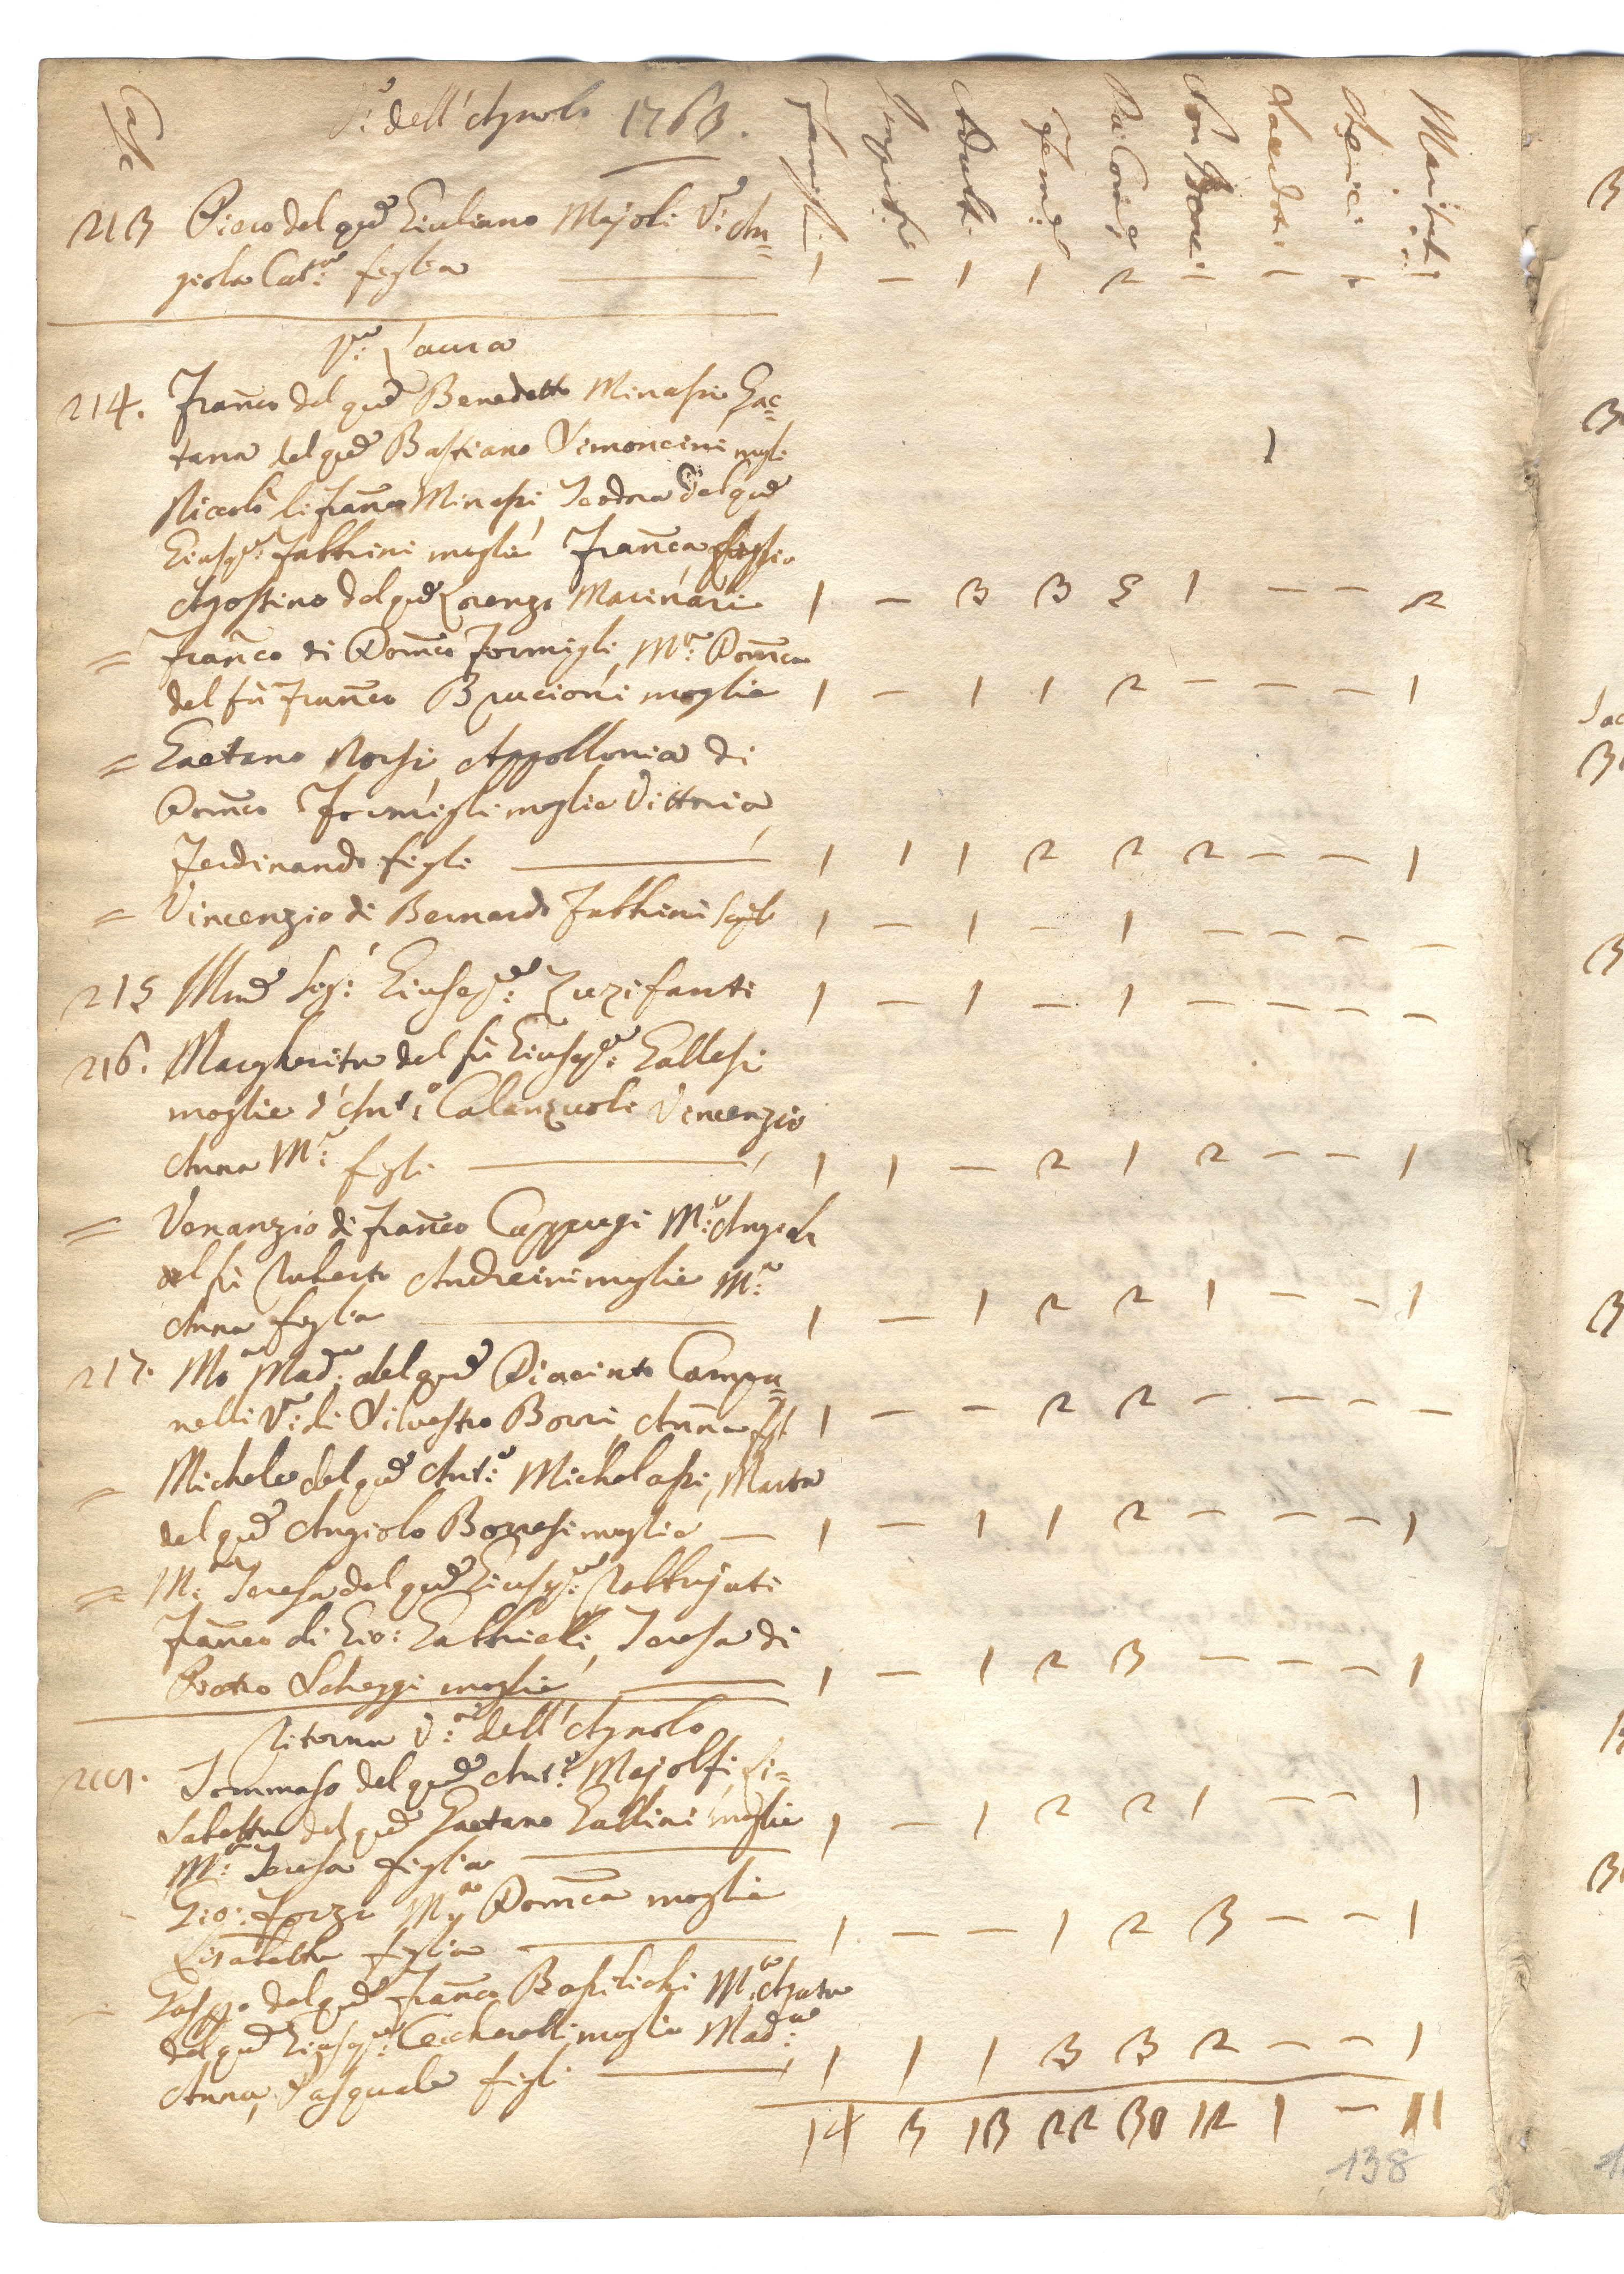 Case
Va: dell'Agnolo 1763.
Famigli: Impub: Adulti Femine Da Com: Non Com: Sacerdoti Cherici Maritati
213 Piero del qud Giuliano Majoli Va: An=
giola Catna: figlia 1 – 1 1 2 – – – 1
Va: Laura
214. Franco del qud Benedetto Minassi Gae=
tana del qud Bastiano Simoncini mogli 1
Niccolò di Franco Minassi, Teodora del qud
Giusepe: Fabbrini moglie Franca figlia
Agostino del qud Lorenzo Macinari 1 – 3 3 5 1 – – 2
= Franco di Domco Formigli, Ma: Domca
del fù Franco Brucioni moglie 1 – 1 1 2 – – – 1
= Gaetano Norsi, Appollonia di
Domco Formigli moglie Vittoria,
Ferdinando figli 1 1 1 2 2 2 – – 1
= Vincenzio di Bernardo Fabbrini 1 – 1 – 1 – – – –
215 Giusepe: Zuzifanti 1 – 1 – 1 – – – –
216. Margherita del fù Giusepe: Gallesi
moglie d'Anto: Calanzuoli Vincenzio
Anna Ma: figli 1 1 – 2 1 2 – – 1
= Venanzio di Franco Cappugi Ma: Angiola
del fù Ruberto Andreini moglie Ma:
Anna figlia 1 – 1 2 2 1 – – 1
217. Ma Madna: del qud Diacinto Campa=
nelli Va: di Silvestro Borri, Anna 1 – – 2 2 – – – –
= Michele del qud Anto: Michelassi, Marta
del qud Angiolo Borresi moglie – 1 – 1 1 2 – – – 1
= Ma: Teresa del qud Giusepe: Rabbujati
Franco di Gio: Gabbrielli, Teresa di
Pietro Scheggi moglie 1 – 1 2 3 – – – 1
Ritorna Va: dell'Agnolo
209. Tommaso del qud Anto: Majolfi, Li=
sabetta del qud Gaetano Gallini moglie 1 – 1 2 2 1 – – 1
Ma: Teresa figlia
– Gio: Forzi Ma Domca moglie
Lisabetta figlia 1 – – 1 2 3 – – 1
– Gaspo del qud Franco Basilichi Ma: Agata
del qud Giusepe: Ceccherelli moglie Madna:
Anna, Pasquale figli 1 1 1 3 3 2 – – 1
14 3 13 22 30 12 1 – 11
138